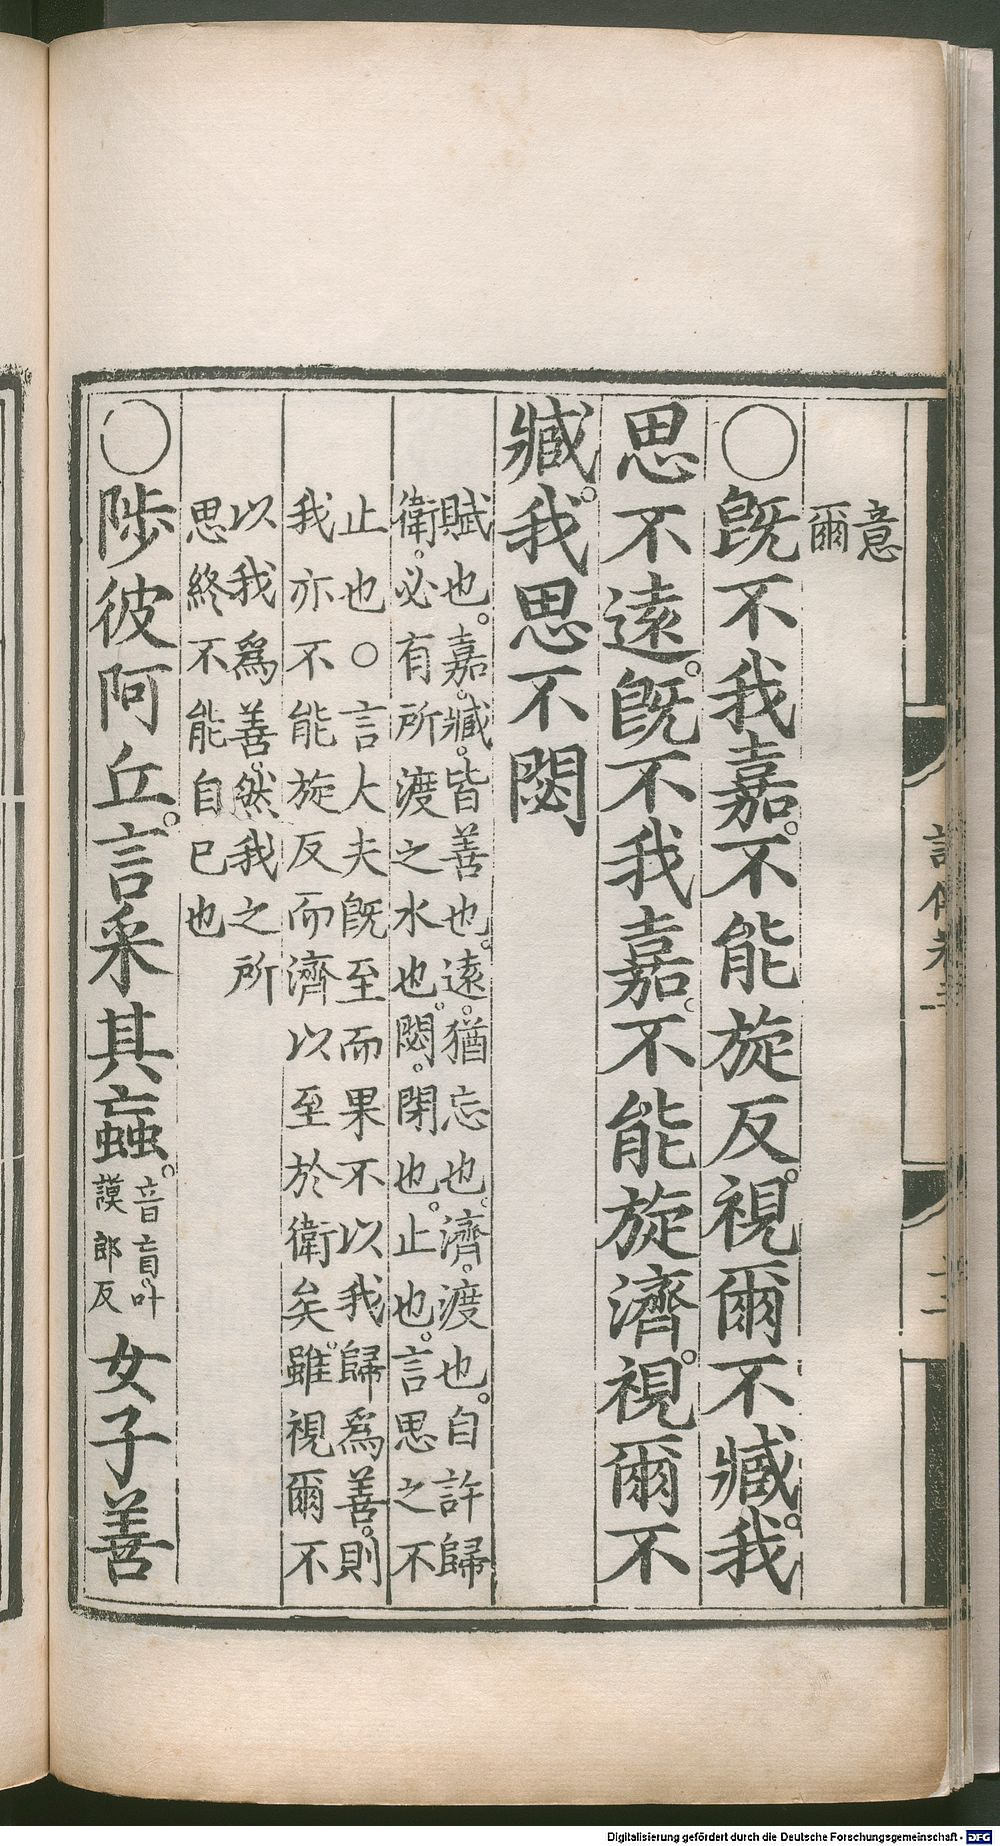 意
爾
○旣不我嘉。不能旋反。視爾不臧。我
思不遠。旣不我嘉。不能旋濟。視爾不
臧。我思不閟
賦也。嘉。臧。皆善也。遠。猶忘也。濟。渡也。自許歸
衛。必有所渡之水也。閟。閉也。止也。言思之不
止也○言大夫旣至而果不以我歸爲善。則
我亦不能旋反而濟以至於衛矣。雖視爾不
以我爲善。然我之所
思終不能自已也
○陟彼阿丘。言采其蝱。音盲。叶謨郎反女子善
Digitalisierung gefördert durch die Deutsche Forschungsgemeinschaft - DFG